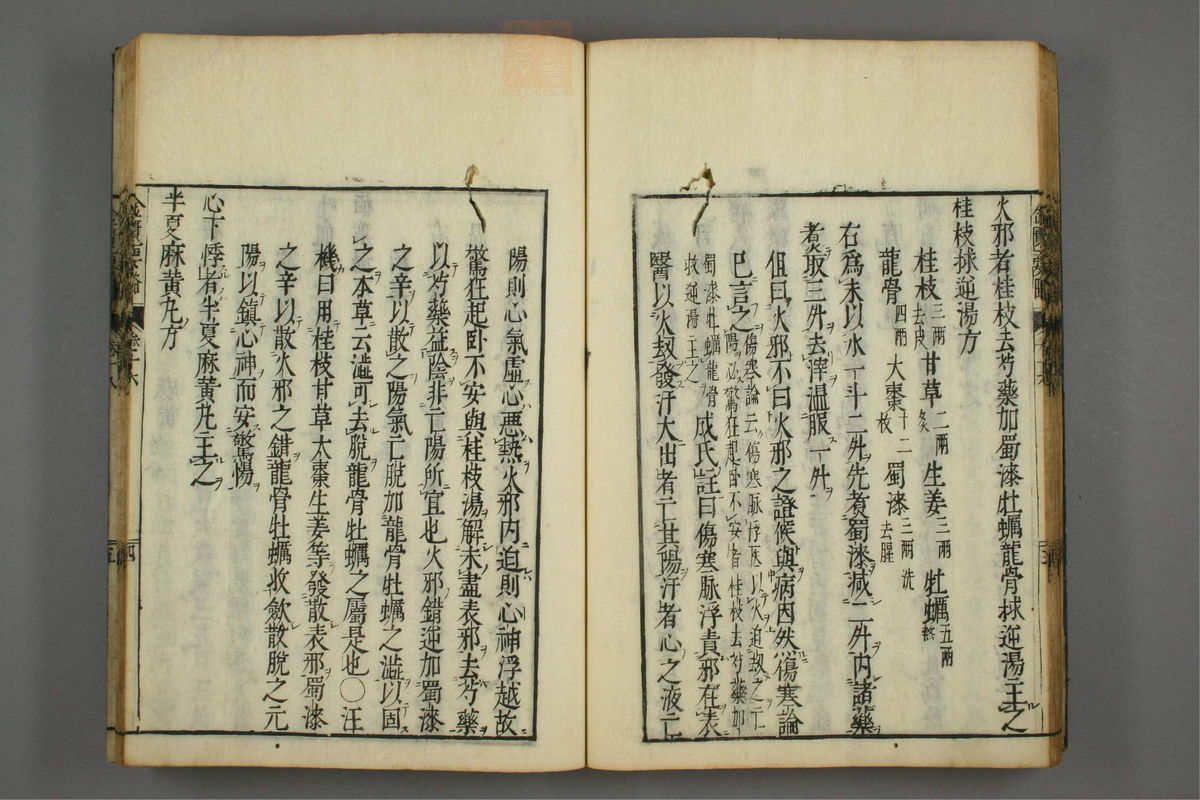 火邪者桂枝去芍藥加蜀漆牡蠣龍骨救逆湯主之
桂枝救逆湯方
桂枝三兩去皮 甘草二兩炙 生姜三兩 牡蠣五兩熬
龍骨四兩 大棗十二枚 蜀漆三兩洗去腥
右爲末以水一斗二升先煑蜀漆減二升内諸藥
煑取三升去滓温服一升
但曰火邪不曰火邪之證候與病因然傷寒論
已言之傷寒論云傷寒脉浮医以火迫劫之亡陽必驚狂起卧不安者桂枝去芍藥加
蜀漆牡蠣龍骨救逆湯主之成氏註曰傷寒脉浮責邪在表
醫以火劫發汗大出者亡其陽汗者心之液亡
陽則心氣虚心悪熱火邪内迫則心神浮越故
驚狂起卧不安與桂枝湯解未盡表邪去芍藥
以芍藥益陰非亡陽所宜也火邪錯逆加蜀漆
之辛以散之陽氣亡脱加龍骨牡蠣之澁以固
之本草云澁可去脱龍骨牡蠣之屬是也〇汪
機曰用桂枝甘草大棗生姜等發散表邪蜀漆
之辛以散火邪之錯龍骨牡蠣收歛散脱之元
陽以鎮心神而安驚惕
心下悸者半夏麻黄丸主之
半夏麻黄丸方